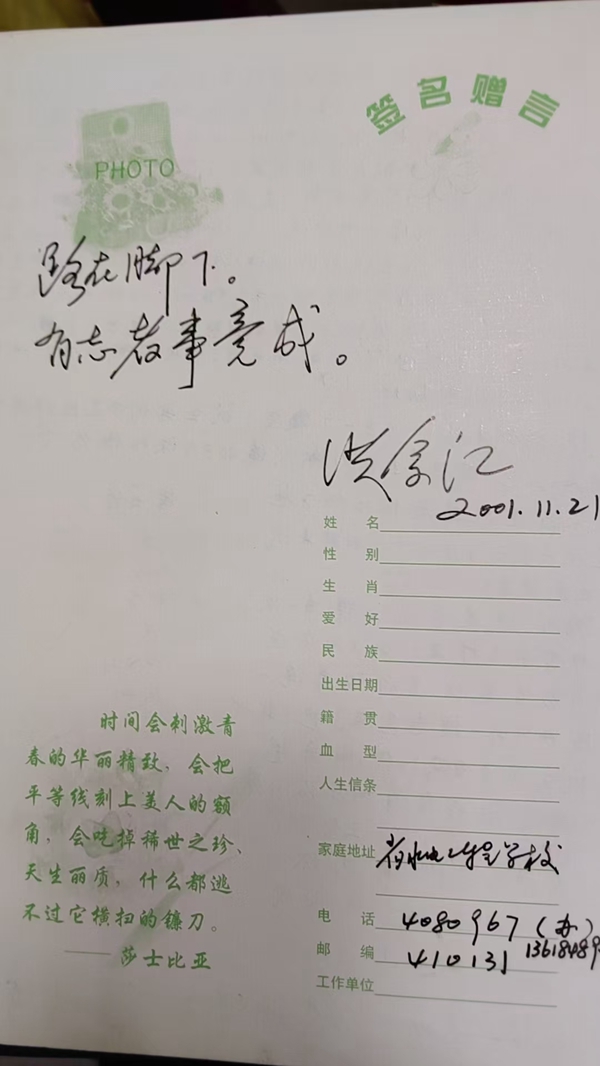 签名赠言
PHOTO
路在脚下。
有志者事竟成。
2001.11.21
姓 名
性 别
生 肖
爱 好
民 族
出生日期
籍 贯
血 型
人生信条
家庭地址 省水电工程学校
电 话 4080967(办)
13618489
邮 编 410131
工作单位
时间会刺激青
春的华丽精致,会把
平等线刻上美人的额
角,会吃掉稀世之珍、
天生丽质,什么都逃
不过它横扫的镰刀。
——莎士比亚